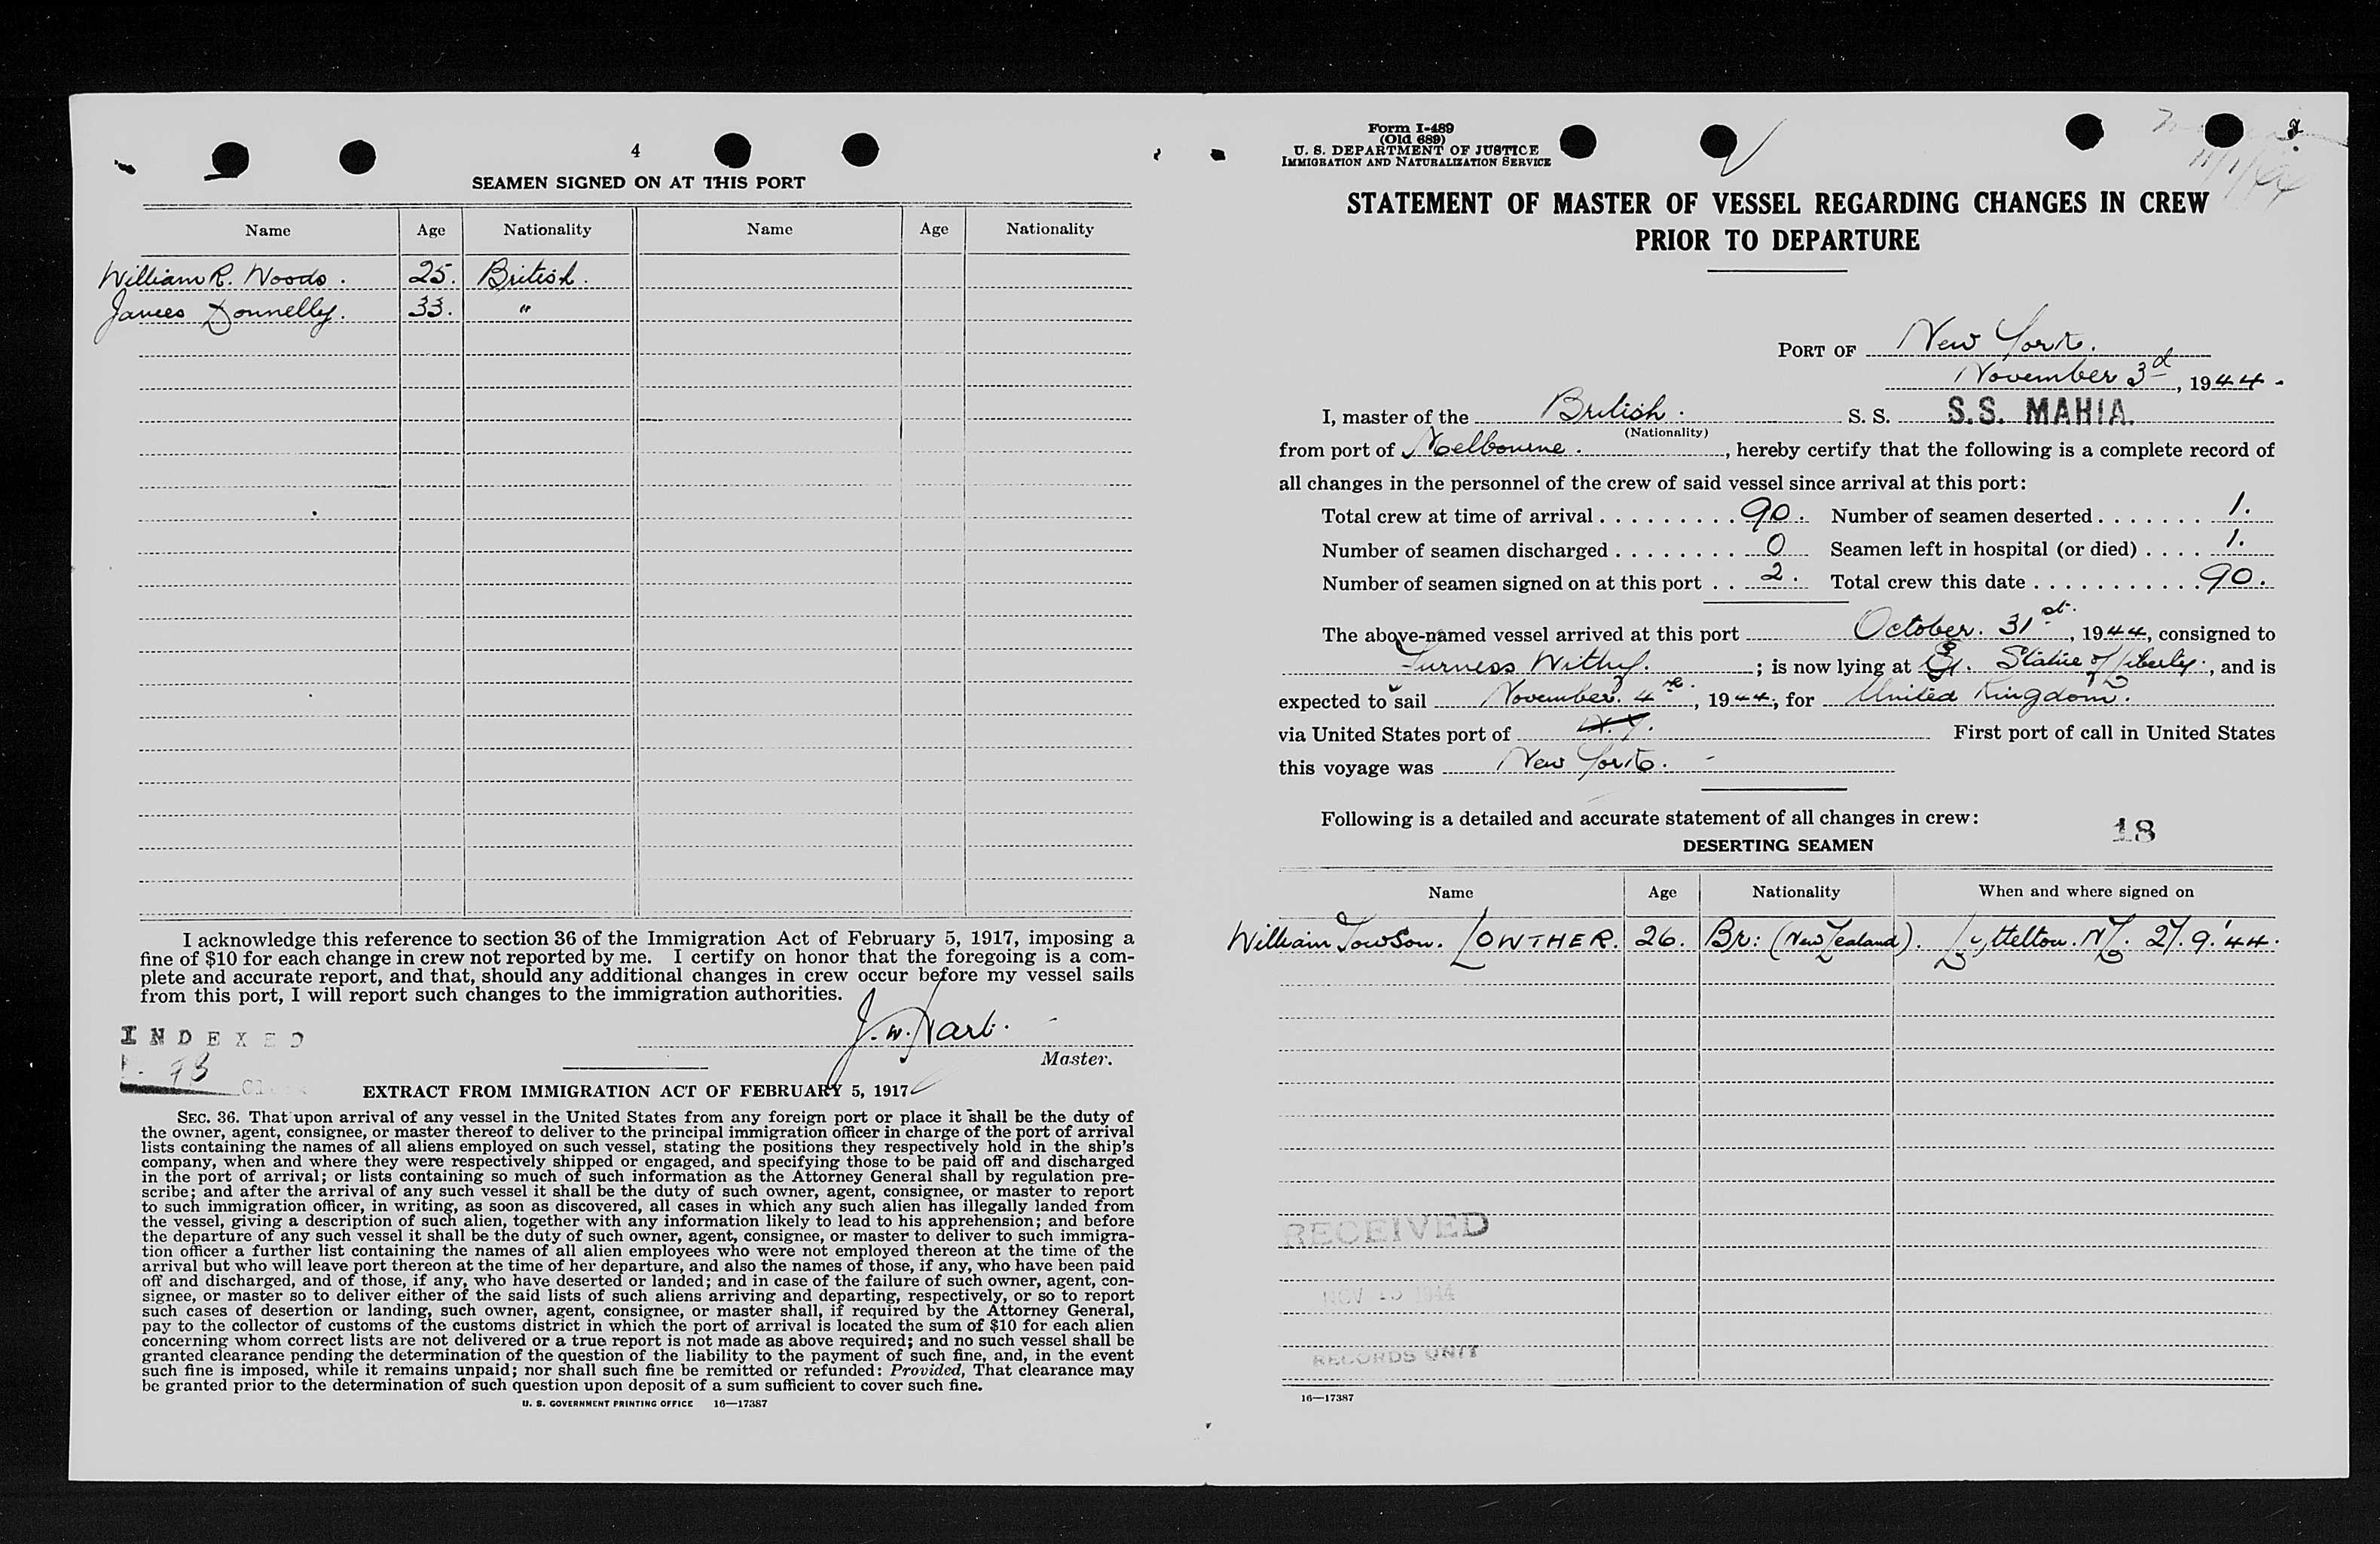 4
SEAMEN SIGNED ON AT THIS PORT
Name Age Nationality Name Age Nationality
William R. Woods. 25. British.
James Donnelly. 33. "
I acknowledge this reference to section 36 of the Immigration Act of February 5, 1917, imposing a
fine of $10 for each change in crew not reported by me. I certify on honor that the foregoing is a com-
plete and accurate report, and that, should any additional changes in crew occur before my vessel sails
from this port, I will report such changes to the immigration authorities.
INDEXED
J. W. Hart.
Master.
EXTRACT FROM IMMIGRATION ACT OF FEBRUARY 5, 1917
SEC. 36. That upon arrival of any vessel in the United States from any foreign port or place it shall be the duty of
the owner, agent, consignee, or master thereof to deliver to the principal immigration officer in charge of the port of arrival
lists containing the names of all aliens employed on such vessel, stating the positions they respectively hold in the ship's
company, when and where they were respectively shipped or engaged, and specifying those to be paid off and discharged
in the port of arrival; or lists containing so much of such information as the Attorney General shall by regulation pre-
scribe; and after the arrival of any such vessel it shall be the duty of such owner, agent, consignee, or master to report
to such immigration officer, in writing, as soon as discovered, all cases in which any such alien has illegally landed from
the vessel, giving a description of such alien, together with any information likely to lead to his apprehension; and before
the departure of any such vessel it shall be the duty of such owner, agent, consignee, or master to deliver to such immigra-
tion officer a further list containing the names of all alien employees who were not employed thereon at the time of the
arrival but who will leave port thereon at the time of her departure, and also the names of those, if any, who have been paid
off and discharged, and of those, if any, who have deserted or landed; and in case of the failure of such owner, agent, con-
signee, or master so to deliver either of the said lists of such aliens arriving and departing, respectively, or so to report
such cases of desertion or landing, such owner, agent, consignee, or master shall, if required by the Attorney General,
pay to the collector of customs of the customs district in which the port of arrival is located the sum of $10 for each alien
concerning whom correct lists are not delivered or a true report is not made as above required; and no such vessel shall be
granted clearance pending the determination of the question of the liability to the payment of such fine, and, in the event
such fine is imposed, while it remains unpaid; nor shall such fine be remitted or refunded: Provided, That clearance may
be granted prior to the determination of such question upon deposit of a sum sufficient to cover such fine.
U. S. GOVERNMENT PRINTING OFFICE 16—17387
Form I-489
(Old 689)
U. S. DEPARTMENT OF JUSTICE
IMMIGRATION AND NATURALIZATION SERVICE
11/1/44
STATEMENT OF MASTER OF VESSEL REGARDING CHANGES IN CREW
PRIOR TO DEPARTURE
PORT OF New York.
November 3d, 1944.
I, master of the British. S. S. S.S. MAHIA.
(Nationality)
from port of Melbourne., hereby certify that the following is a complete record of
all changes in the personnel of the crew of said vessel since arrival at this port:
Total crew at time of arrival 90. Number of seamen deserted 1.
Number of seamen discharged 0 Seamen left in hospital (or died) 1.
Number of seamen signed on at this port 2. Total crew this date 90.
The above-named vessel arrived at this port October. 31st., 1944, consigned to
Furness Withy.; is now lying at Statue of Liberty., and is
expected to sail November. 4th., 1944, for United Kingdom.
via United States port of N.Y. First port of call in United States
this voyage was New York.
Following is a detailed and accurate statement of all changes in crew:
18
DESERTING SEAMEN
Name Age Nationality When and where signed on
William Towson. LOWTHER. 26. Br: (New Zealand). Lyttelton. NZ. 27.9.'44.
RECEIVED
NOV 13 1944
RECORDS UNIT
16—17387